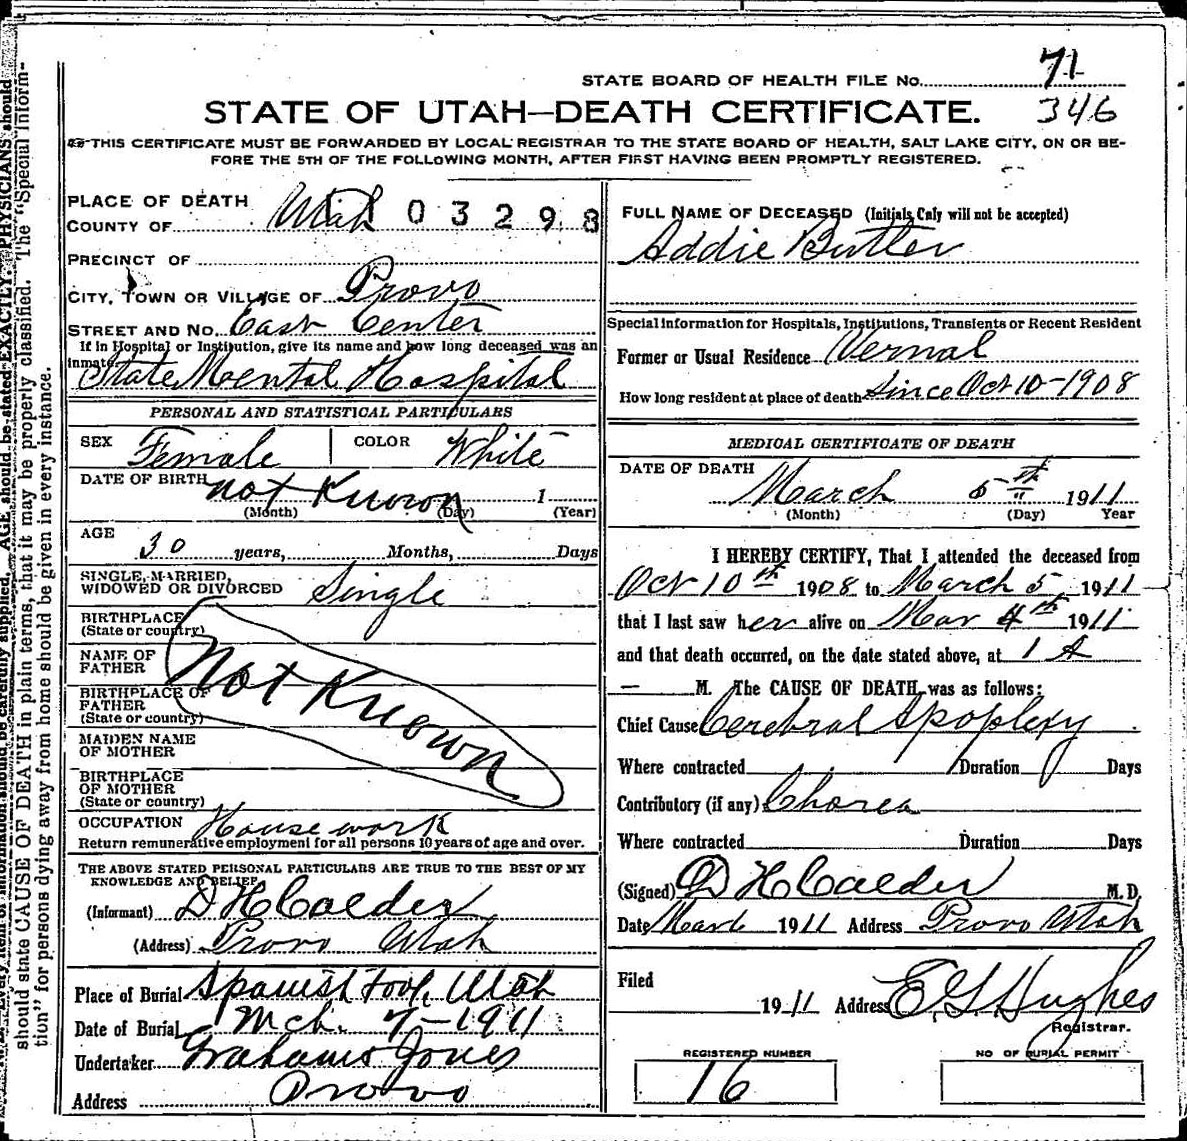 STATE BOARD OF HEALTH FILE No. 71
STATE OF UTAH—DEATH CERTIFICATE. 346
THIS CERTIFICATE MUST BE FORWARDED BY LOCAL REGISTRAR TO THE STATE BOARD OF HEALTH, SALT LAKE CITY, ON OR BE-
FORE THE 5TH OF THE FOLLOWING MONTH, AFTER FIRST HAVING BEEN PROMPTLY REGISTERED.
PLACE OF DEATH
COUNTY OF Utah 03298
PRECINCT OF
CITY, TOWN OR VILLAGE OF Provo
STREET AND No. East Center
If in Hospital or Institution, give its name and how long deceased was an
inmate State Mental Hospital
PERSONAL AND STATISTICAL PARTICULARS
SEX Female COLOR White
DATE OF BIRTH not Known 1
(Month) (Day) (Year)
AGE
30 years, Months, Days
SINGLE, MARRIED,
WIDOWED OR DIVORCED Single
BIRTHPLACE
(State or country)
NAME OF
FATHER
Not Known
BIRTHPLACE OF
FATHER
(State or country)
MAIDEN NAME
OF MOTHER
BIRTHPLACE
OF MOTHER
(State or country)
OCCUPATION Housework
Return remunerative employment for all persons 10 years of age and over.
THE ABOVE STATED PERSONAL PARTICULARS ARE TRUE TO THE BEST OF MY
KNOWLEDGE AND BELIEF
(Informant) D H Calder
(Address) Provo Utah
Place of Burial Spanish Fork, Utah
Date of Burial Mch. 7-1911
Undertaker Grahams Jones
Address Provo
FULL NAME OF DECEASED (Initials Only will not be accepted)
Addie Butler
Special information for Hospitals, Institutions, Transients or Recent Resident
Former or Usual Residence Vernal
How long resident at place of death Since Oct 10-1908
MEDICAL CERTIFICATE OF DEATH
DATE OF DEATH
March 5th 1911
(Month) (Day) Year
I HEREBY CERTIFY, That I attended the deceased from
Oct 10th 1908 to March 5 1911
that I last saw her alive on Mar 4th 1911
and that death occurred, on the date stated above, at 1 A
— M. The CAUSE OF DEATH was as follows:
Chief Cause Cerebral Apoplexy
Where contracted Duration Days
Contributory (if any) Chorea
Where contracted Duration Days
(Signed) D H Calder M. D.
Date March 1911 Address Provo Utah
Filed
1911 Address E. G. Hughes
Registrar.
REGISTERED NUMBER
16
NO OF BURIAL PERMIT
AGE should be stated EXACTLY. PHYSICIANS should
should state CAUSE OF DEATH in plain terms, that it may be properly classified. The "Special Inform-
tion" for persons dying away from home should be given in every instance.